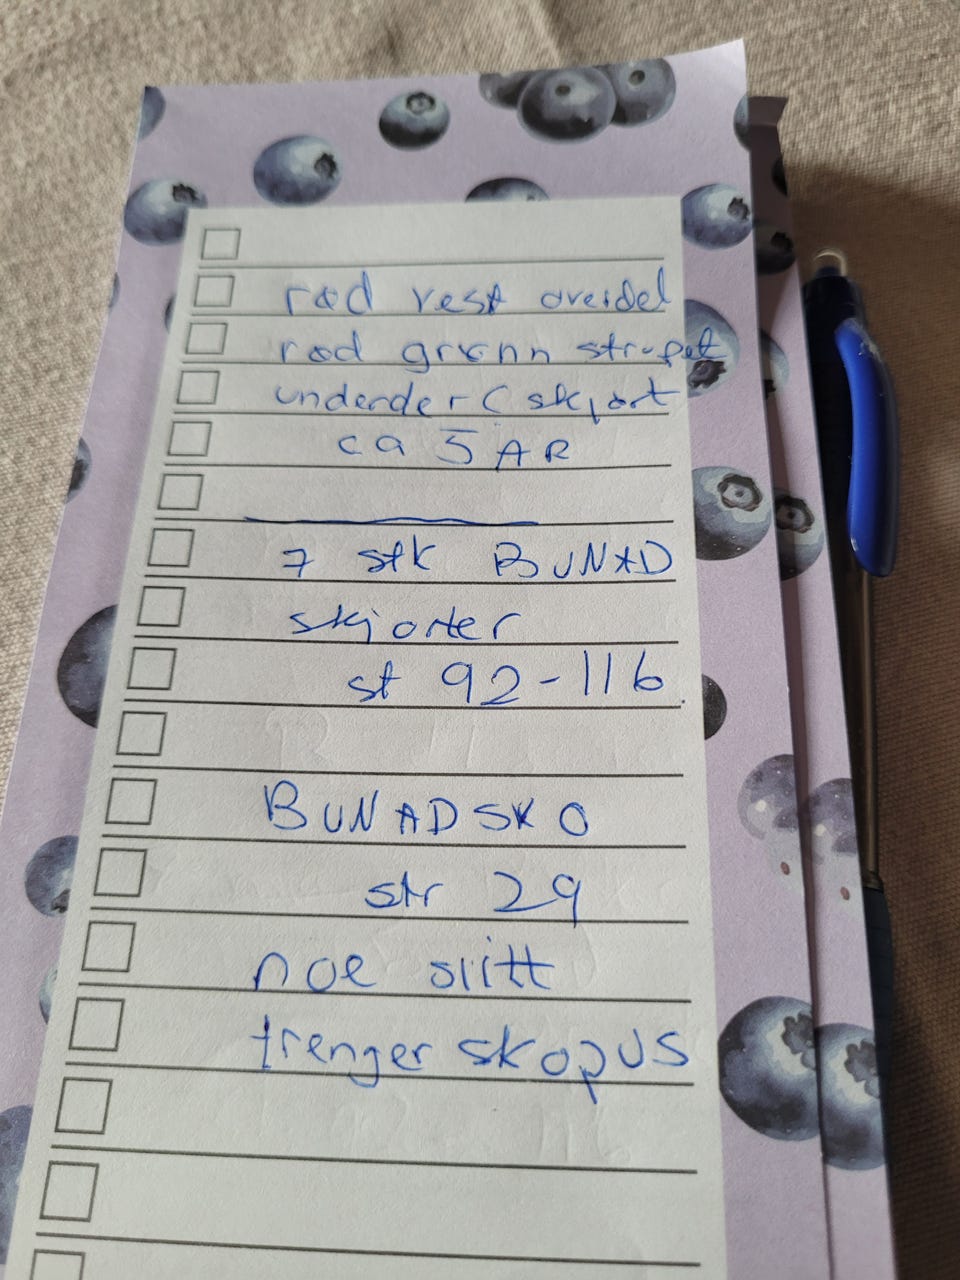 rød vest overdel
rød grønn stripet
underdel (skjørt
ca 5 ÅR
7 stk BUNAD
skjorter
st 92-116.
BUNADSKO
str 29
noe slitt
trenger skopuss